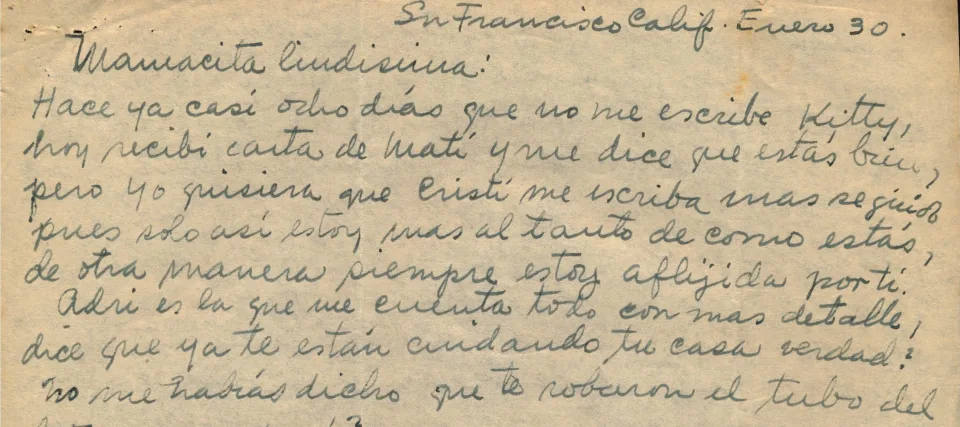 Sn Francisco Calif. Enero 30.
Mamacita lindisima:
Hace ya casi ocho días que no me escribe Kitty,
hoy recibi carta de Mati y me dice que estás bien,
pero yo quisiera que Cristi me escriba mas seguido
pues solo así estoy mas al tanto de como estás,
de otra manera siempre estoy aflijida por ti.
Adri es la que me cuenta todo con mas detalle,
dice que ya te están cuidando tu casa verdad?
No me habías dicho que te robaron el tubo del